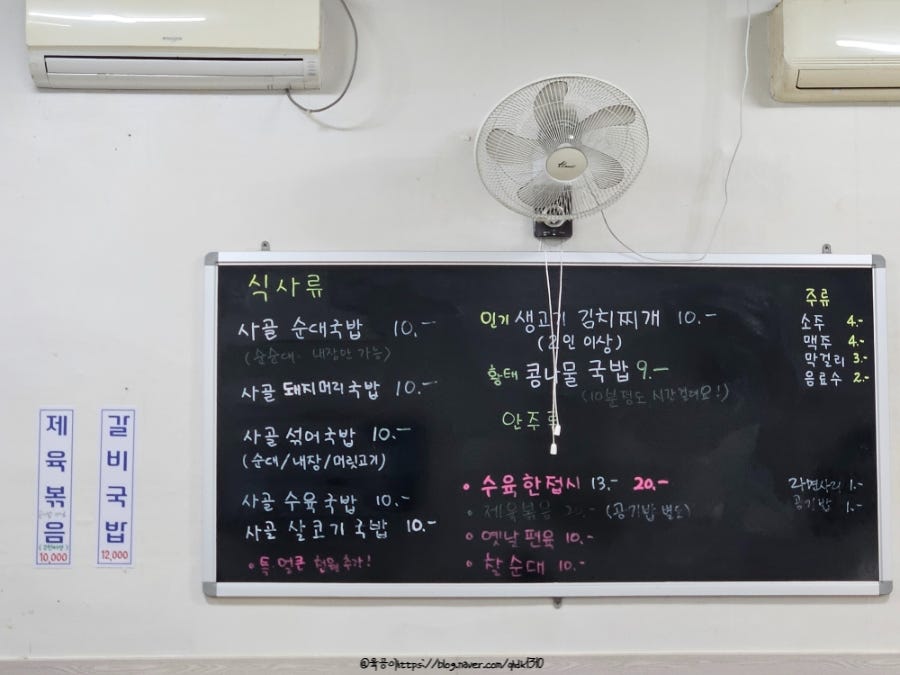 식사류
사골 순대국밥 10.-
(순순대· 내장만 가능)
사골 돼지머리국밥 10.-
사골 섞어국밥 10.-
(순대/내장/머릿고기)
사골 수육국밥 10.-
사골 살코기국밥 10.-
• 특 얼큰 천원 추가!
인기 생고기 김치찌개 10.-
(2인 이상)
황태 콩나물 국밥 9.-
(10분정도 시간걸려요!)
안주류
• 수육한접시 13.- 20.-
• 제육볶음 20.- (공기밥 별도)
• 옛날편육 10.-
• 찰순대 10.-
주류
소주 4.-
맥주 4.-
막걸리 3.-
음료수 2.-
라면사리 1.-
공기밥 1.-
제육볶음
10,000
갈비국밥
12,000
https://blog.naver.com/